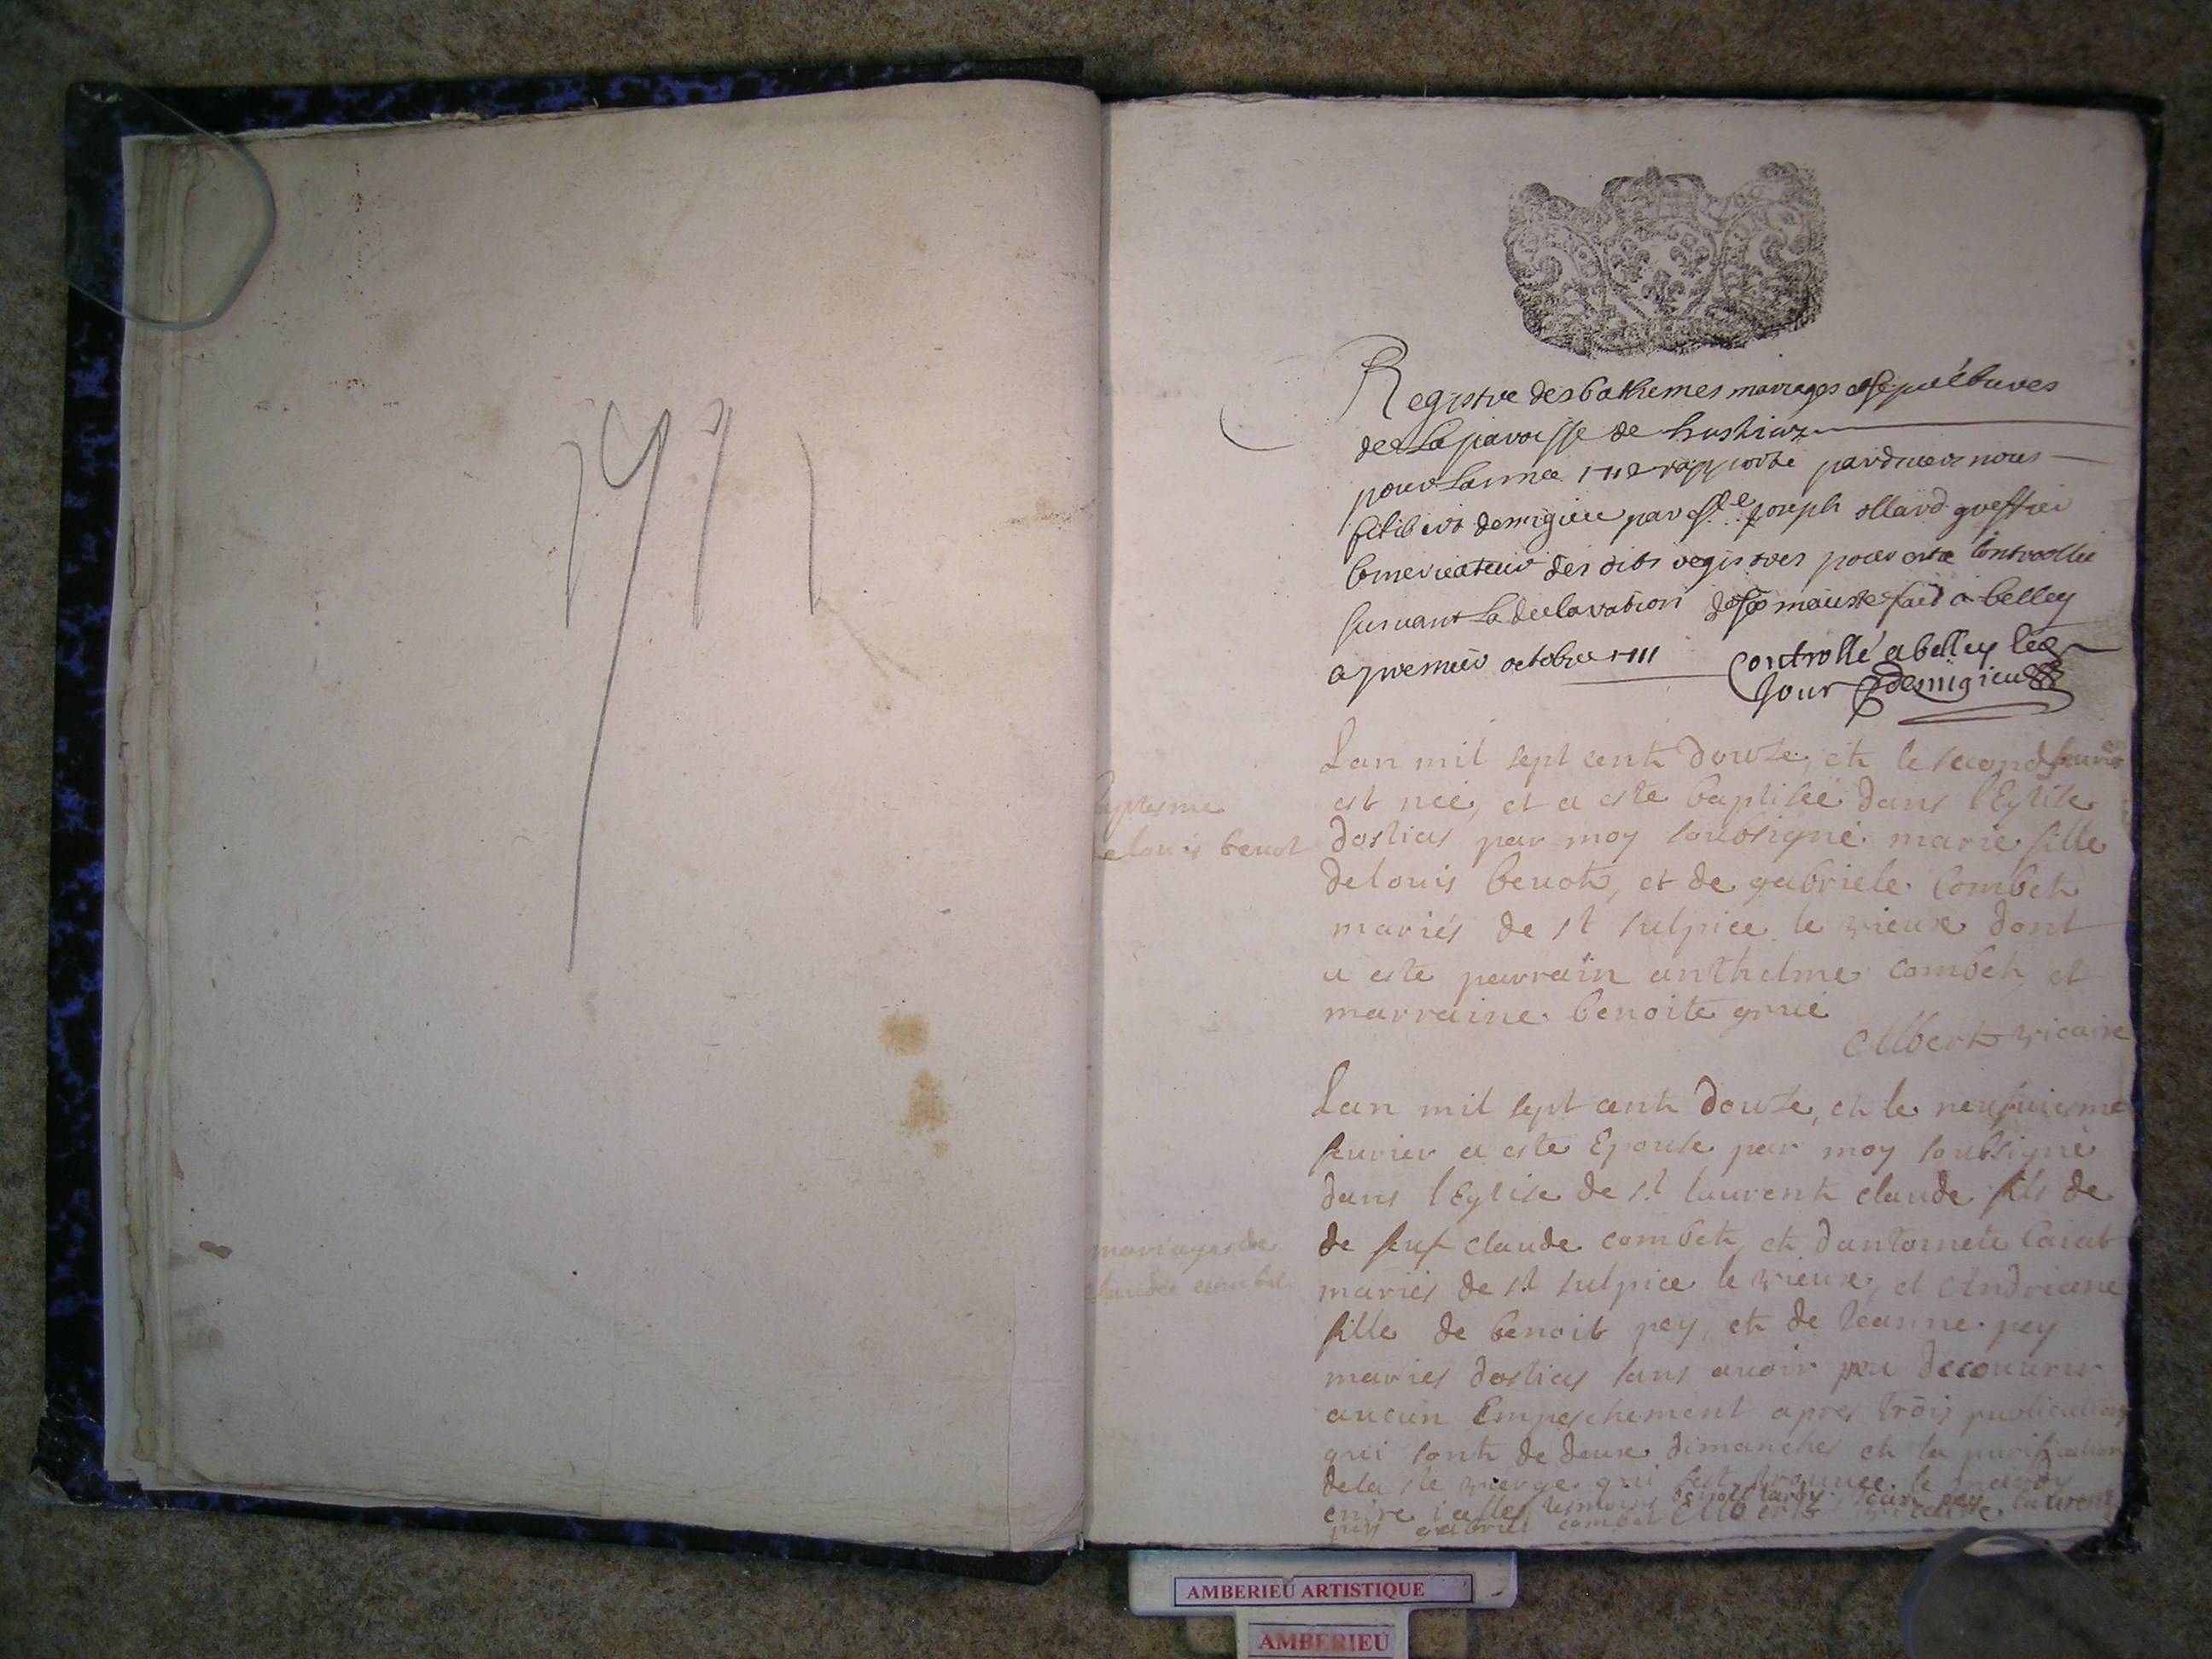 Registre des bathemes mariages et sepultures
de La paroisse de hostiaz
pour Lannee 1712 rapporté pardevers nous
filibert demigieu par Sr joseph ollard greffier
Conservateur des dits registres pour estre Controollé
suivant La declaration de sa majesté faid a belley
a premier octobre 1711
Controllé a belley led
jour Demigieu
baptesme
de louis benot
Lan mil sept cent douze, et le second feuvrier
est neé, et a esté baptiseé dans l'Eglise
dostias par moy soubsigné marie fille
de louis benot, et de gabriele Combet
mariés de st sulpice le vieux dont
a esté parrain anthelme combet et
marraine benoite grué
Albert vicaire
mariage de
claude combet
Lan mil sept cent douze, et le neufuiesme
feurier a esté Epousé par moy soubsigné
dans l'Eglise de st laurent claude fils de
de feuf claude combet, et dantoinete
mariés de st sulpice le vieux, et Andriene
fille de benoit pey, et de Jeanne pey
mariés dostias sans auoir peu decouurir
aucun Empeschement apres trois publications
qui sont de deux dimanches et la purification
de la ste vierge qui s'est trouuee le mardy
entre icelles tesmoins benoit jean pey laurent
pey gabriel combet Albert vicaire
AMBERIEU ARTISTIQUE
AMBERIEU